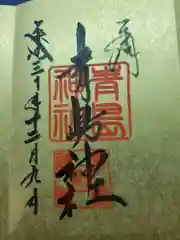 青島神社
青島
神社
平成三十年十二月九日